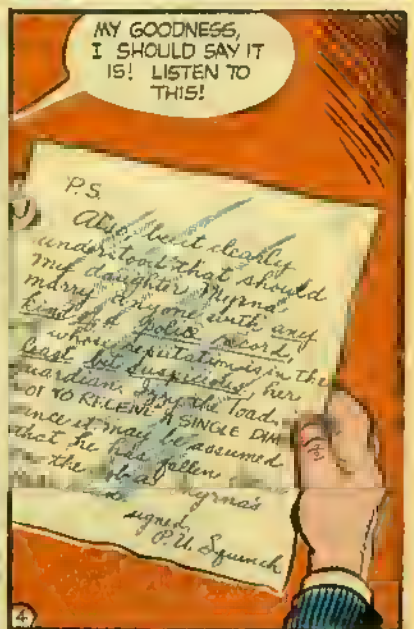 MY GOODNESS,
I SHOULD SAY IT
IS! LISTEN TO
THIS!
P.S.
Also, be it clearly
understood that should
my daughter Myrna
marry anyone with any
kind of a police record,
or whose reputation is in the
least bit suspicious, her
guardian, Izzy the Toad,
NOT TO RECEIVE A SINGLE DIME
since it may be assumed
that he has fallen
the Myrna's
signed,
P.U. Squinch
4